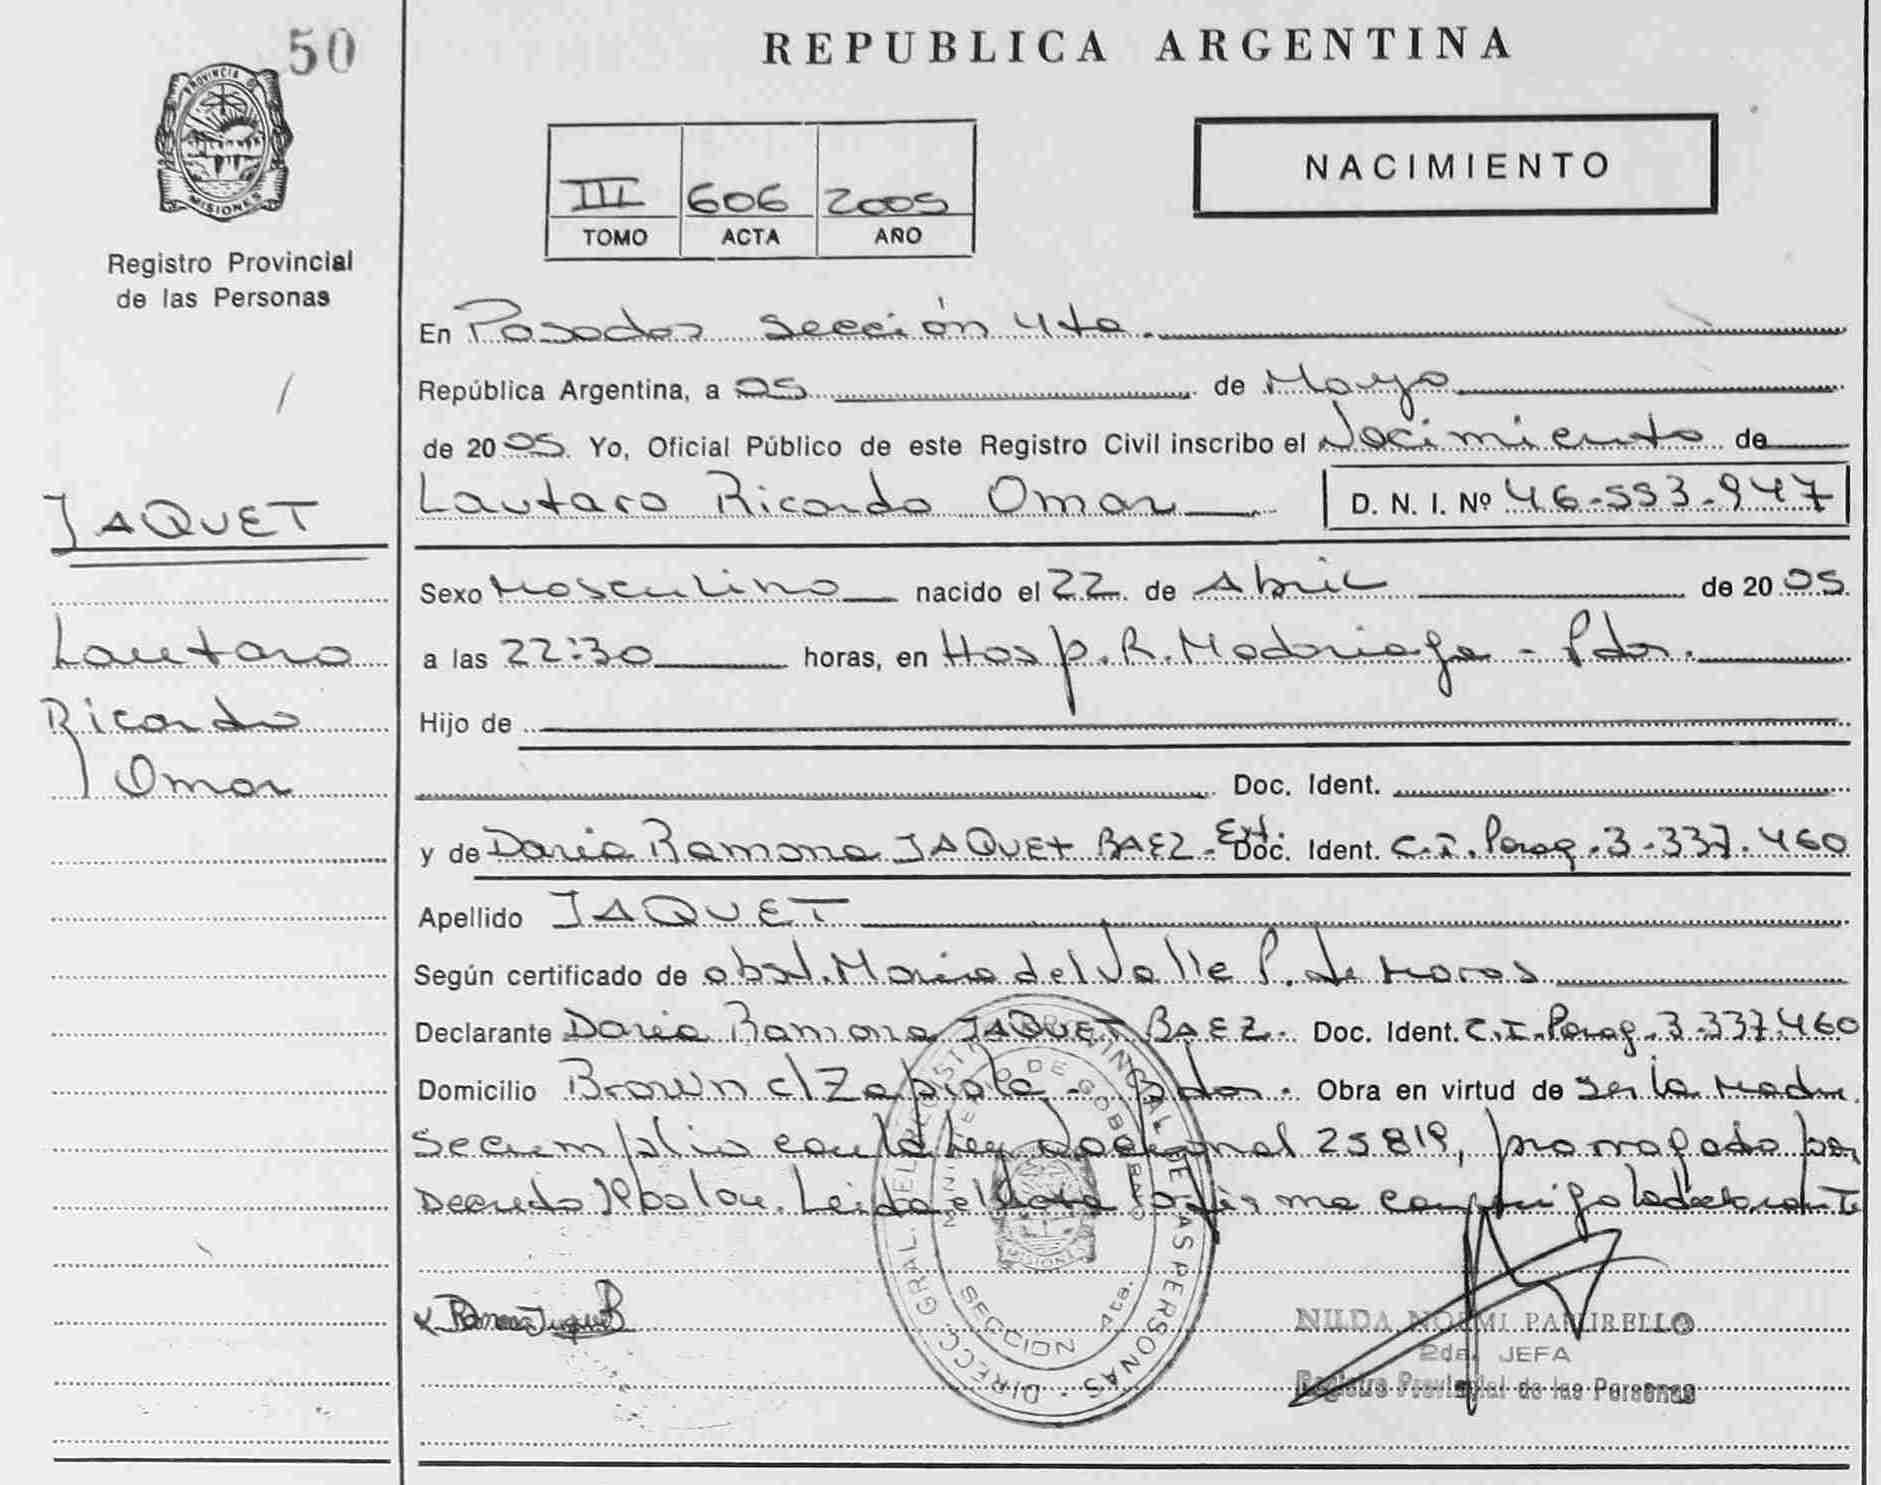 50
REPUBLICA ARGENTINA
PROVINCIA DE
MISIONES
Registro Provincial
de las Personas
III 606 2005
TOMO ACTA AÑO
NACIMIENTO
En Posadas Sección 4ta.
República Argentina, a 05 de Mayo
de 2005. Yo, Oficial Público de este Registro Civil inscribo el Nacimiento de
Lautaro Ricardo Omar D. N. I. Nº 46-553-947
JAQUET
Lautaro
Ricardo
Omar
Sexo Masculino nacido el 22 de Abril de 2005
a las 22:30 horas, en Hosp. R. Madariaga - Pdas.
Hijo de
Doc. Ident.
y de Daria Ramona JAQUET BAEZ - Ext. Doc. Ident. C.I. Parag. 3-337.460
Apellido JAQUET
Según certificado de obst. Maria del Valle P. de Moras
Declarante Daria Ramona JAQUET BAEZ. Doc. Ident. C.I. Parag. 3-337.460
Domicilio Brown c/ Zapiola - Pdas. Obra en virtud de ser la Madre.
Se cumplio con la Ley Nacional 25819, prorrogado por
Decreto Leida el Acta la firma conmigo la declarante
DIRECC. GRAL. DEL REGISTRO PROVINCIAL DE LAS PERSONAS
MINISTERIO DE GOBIERNO
SECCION 4ta.
NILDA NOEMI
2da. JEFA
Registro Provincial de las Personas